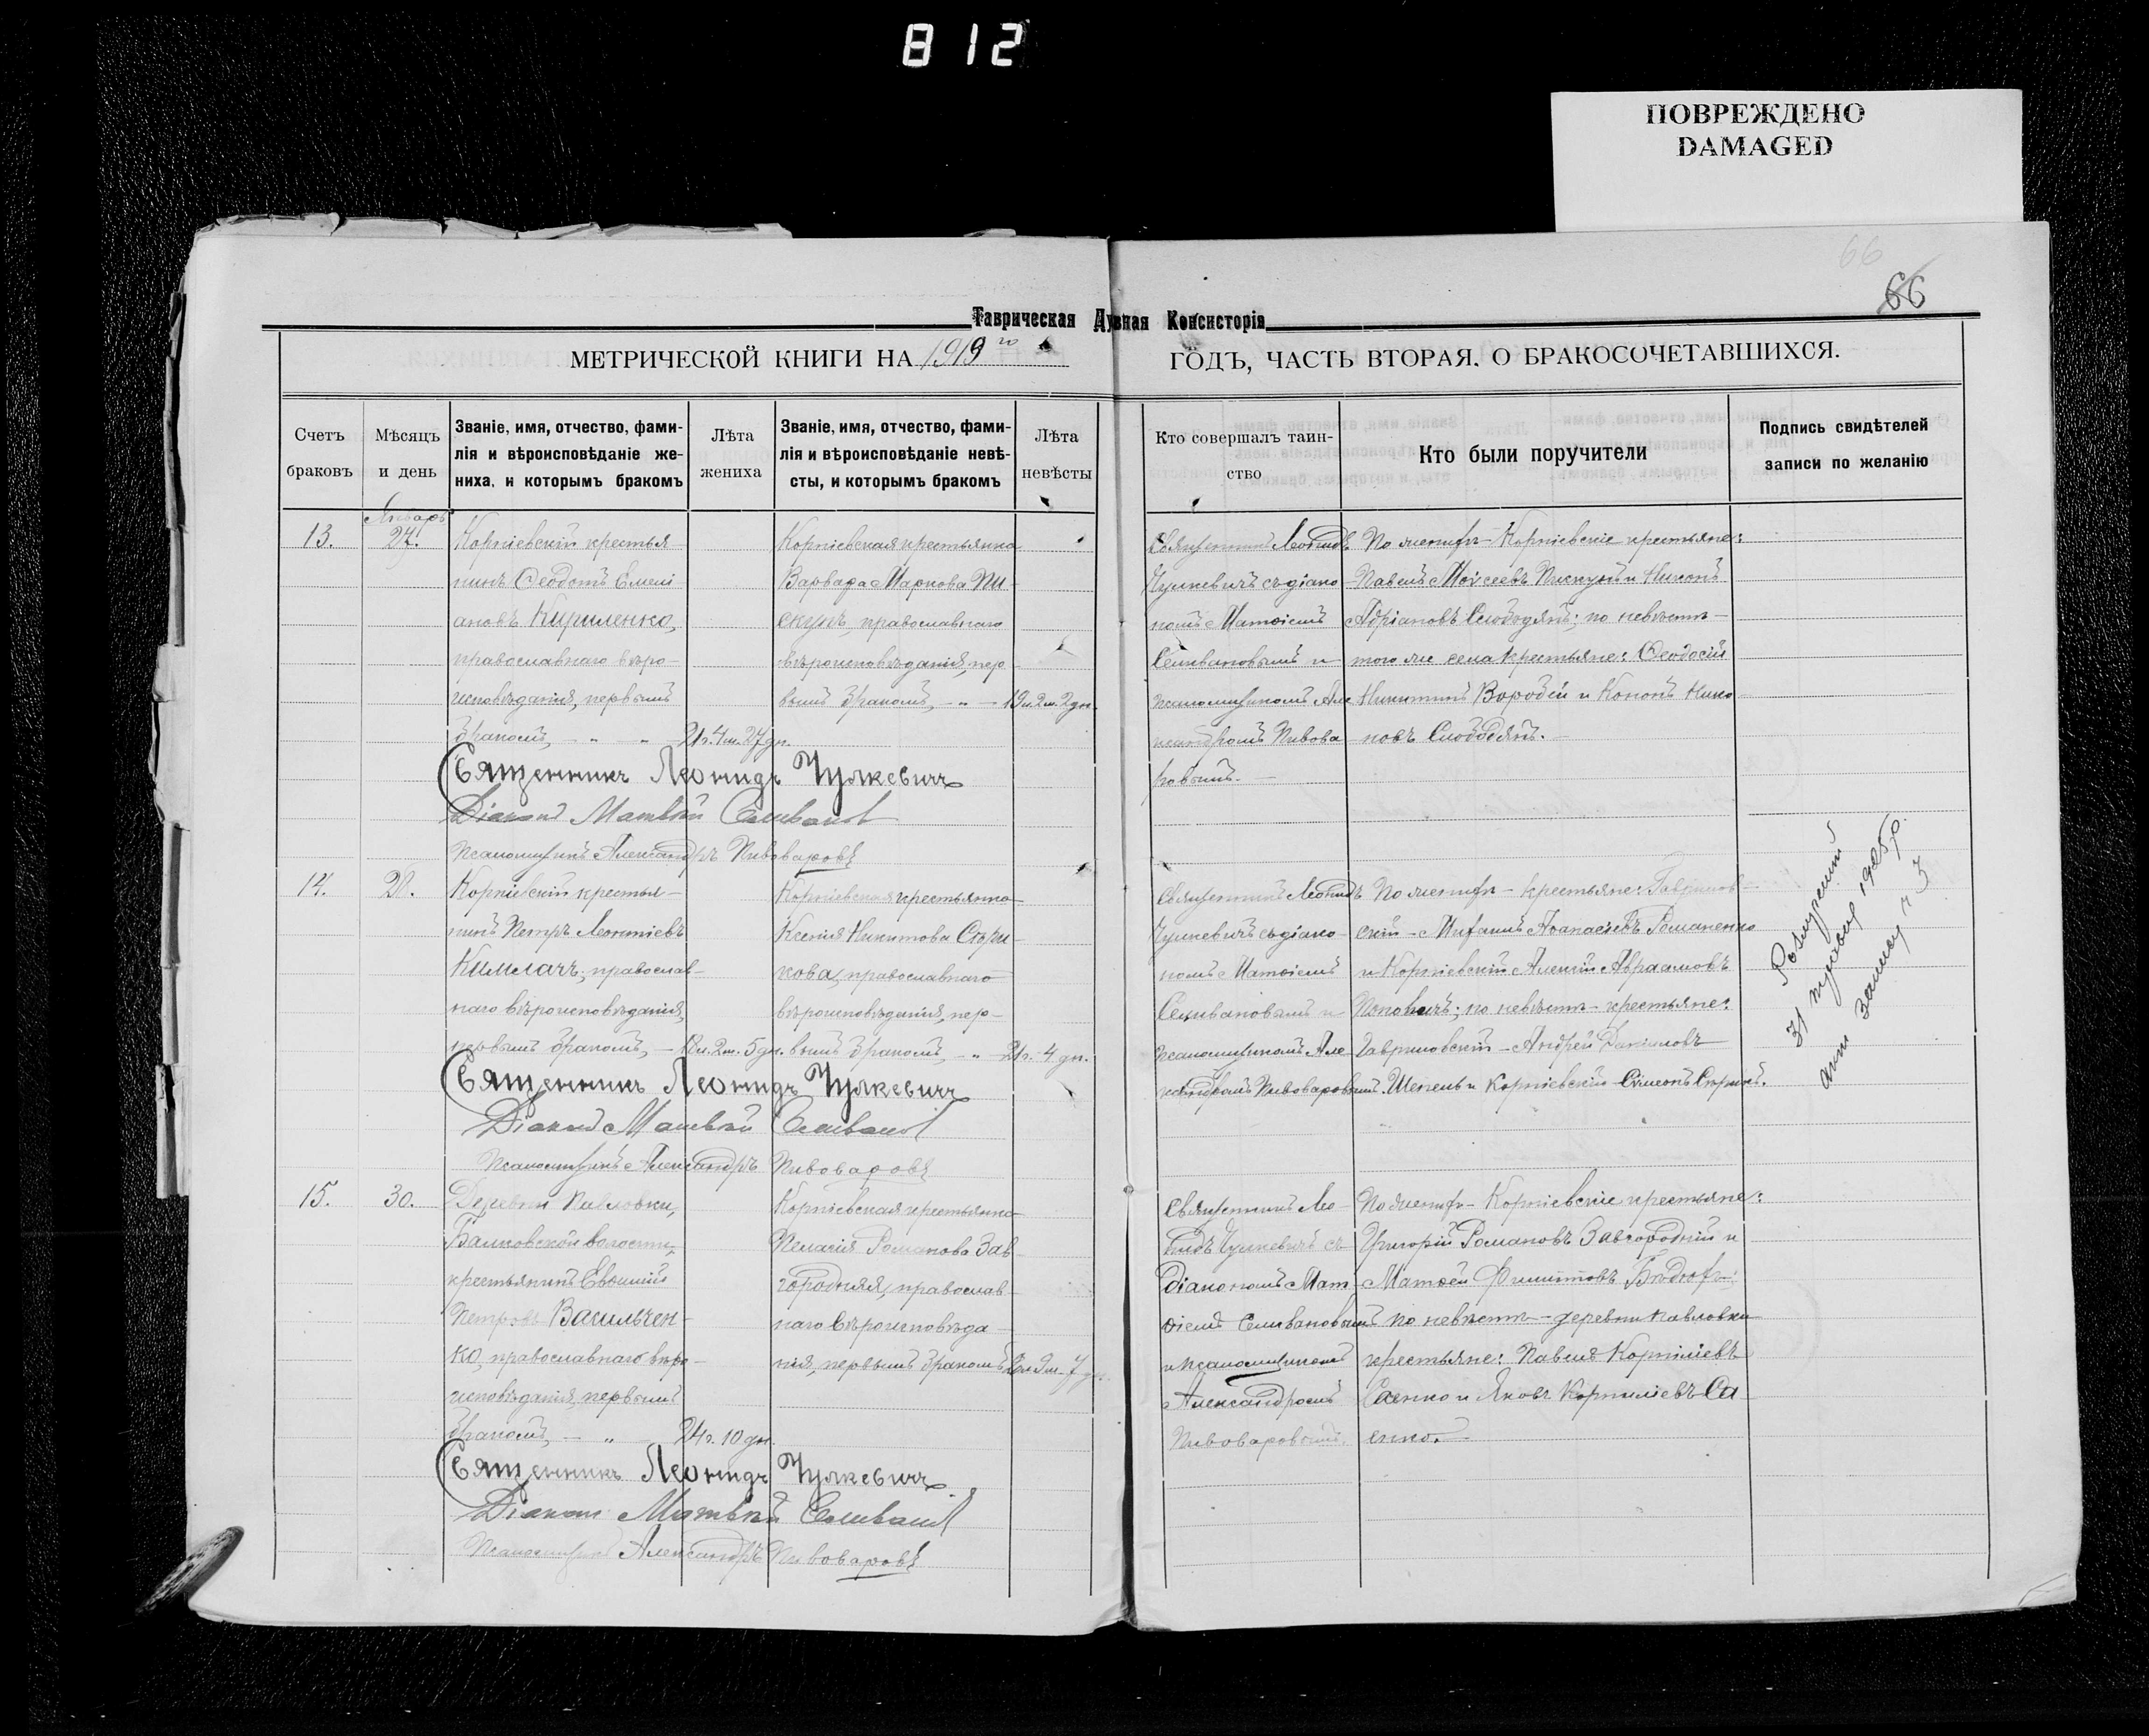 812
ПОВРЕЖДЕНО
DAMAGED
66
66
Таврическая Духная Консисторія
МЕТРИЧЕСКОЙ КНИГИ НА 1919 го ГОДЪ, ЧАСТЬ ВТОРАЯ, О БРАКОСОЧЕТАВШИХСЯ.
Счетъ
браковъ
Мѣсяцъ
и день
Званіе, имя, отчество, фами-
лія и вѣроисповѣданіе же-
ниха, и которымъ бракомъ
Лѣта
жениха
Званіе, имя, отчество, фами-
лія и вѣроисповѣданіе невѣ-
сты, и которымъ бракомъ
Лѣта
невѣсты
Кто совершалъ таин-
ство
Кто были поручители
Подпись свидѣтелей
записи по желанію
13.
Январь
27.
Корніевскій крестья-
нинъ Ѳеодотъ Емелі-
ановъ Кириленко,
православнаго вѣро-
исповѣданія, первымъ
бракомъ, - " - " 21 г. 4 м. 27 дн.
Корніевская крестьянка
Варвара Маркова Пи-
скунъ, православнаго
вѣроисповѣданія, пер-
вымъ бракомъ, - " - 19 л. 2 м. 2 дн.
Священникъ Леонидъ
Чулкевичъ съ діако-
номъ Матѳіемъ
Селивановымъ и
псаломщикомъ Але-
ксандромъ Пивова-
ровымъ.
По женихѣ - Корніевскіе крестьяне:
Павелъ Моисеевъ Пискунъ и Никонъ
Адріановъ Слободянъ; по невѣстѣ -
того же села крестьяне: Ѳеодосій
Никитинъ Воробей и Кононъ Нико-
новъ Слободянъ.
Священникъ Леонидъ Чулкевичъ
Діаконъ Матвѣй Селиванов
Псаломщикъ Александръ Пивоваровъ
14.
28.
Корніевскій крестья-
нинъ Петръ Леонтіевъ
Кимлачъ, православ-
наго вѣроисповѣданія,
первымъ бракомъ, - 18 л. 2 м. 5 дн.
Корніевская крестьянка
Ксенія Никитова Сѣри-
кова, православнаго
вѣроисповѣданія, пер-
вымъ бракомъ, - " - 21 г. 4 дн.
Священникъ Леонидъ
Чулкевичъ съ діако-
номъ Матѳіемъ
Селивановымъ и
псаломщикомъ Але-
ксандромъ Пивоваровымъ.
По женихѣ - крестьяне: Гавриловскій - Аѳанасіевъ Романенко
и Корніевскій Алексій Авраамовъ
Поповичъ; по невѣстѣ - крестьяне:
Гавриловскій - Андрей Даніиловъ
Шепель и Корніевскій Сѵмеонъ Сѣриковъ.
31 1925 р.
Священникъ Леонидъ Чулкевичъ
Діаконъ Матвѣй Селиванов
Псаломщикъ Александръ Пивоваровъ
15.
30.
Деревни Павловки,
Балковской волости,
крестьянинъ Евѳимій
Петровъ Васильчен-
ко, православнаго вѣро-
исповѣданія, первымъ
бракомъ, - " - 24 г. 10 дн.
Корніевская крестьянка
Пелагія Романова Зав-
городняя, православ-
наго вѣроисповѣда-
нія, первымъ бракомъ
Священникъ Лео-
нидъ Чулкевичъ съ
діакономъ Мат-
ѳіемъ Селивановымъ
и псаломщикомъ
Александромъ
Пивоваровымъ.
По женихѣ - Корніевскіе крестьяне:
Григорій Романовъ Завгородній и
Матѳей Филиттовъ
по невѣстѣ - деревни Павловки
крестьяне: Павелъ Корниліевъ
Саенко и Яковъ Корниліевъ Са-
енко.
Священникъ Леонидъ Чулкевичъ
Діаконъ Матвѣй Селиванов
Псаломщикъ Александръ Пивоваровъ